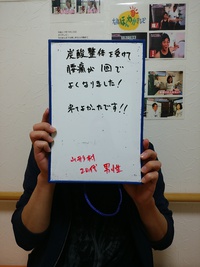 炭酸整体を受けて
腰痛が1回で
よくなりました！
来てよかったです!!
山形村
20代 男性